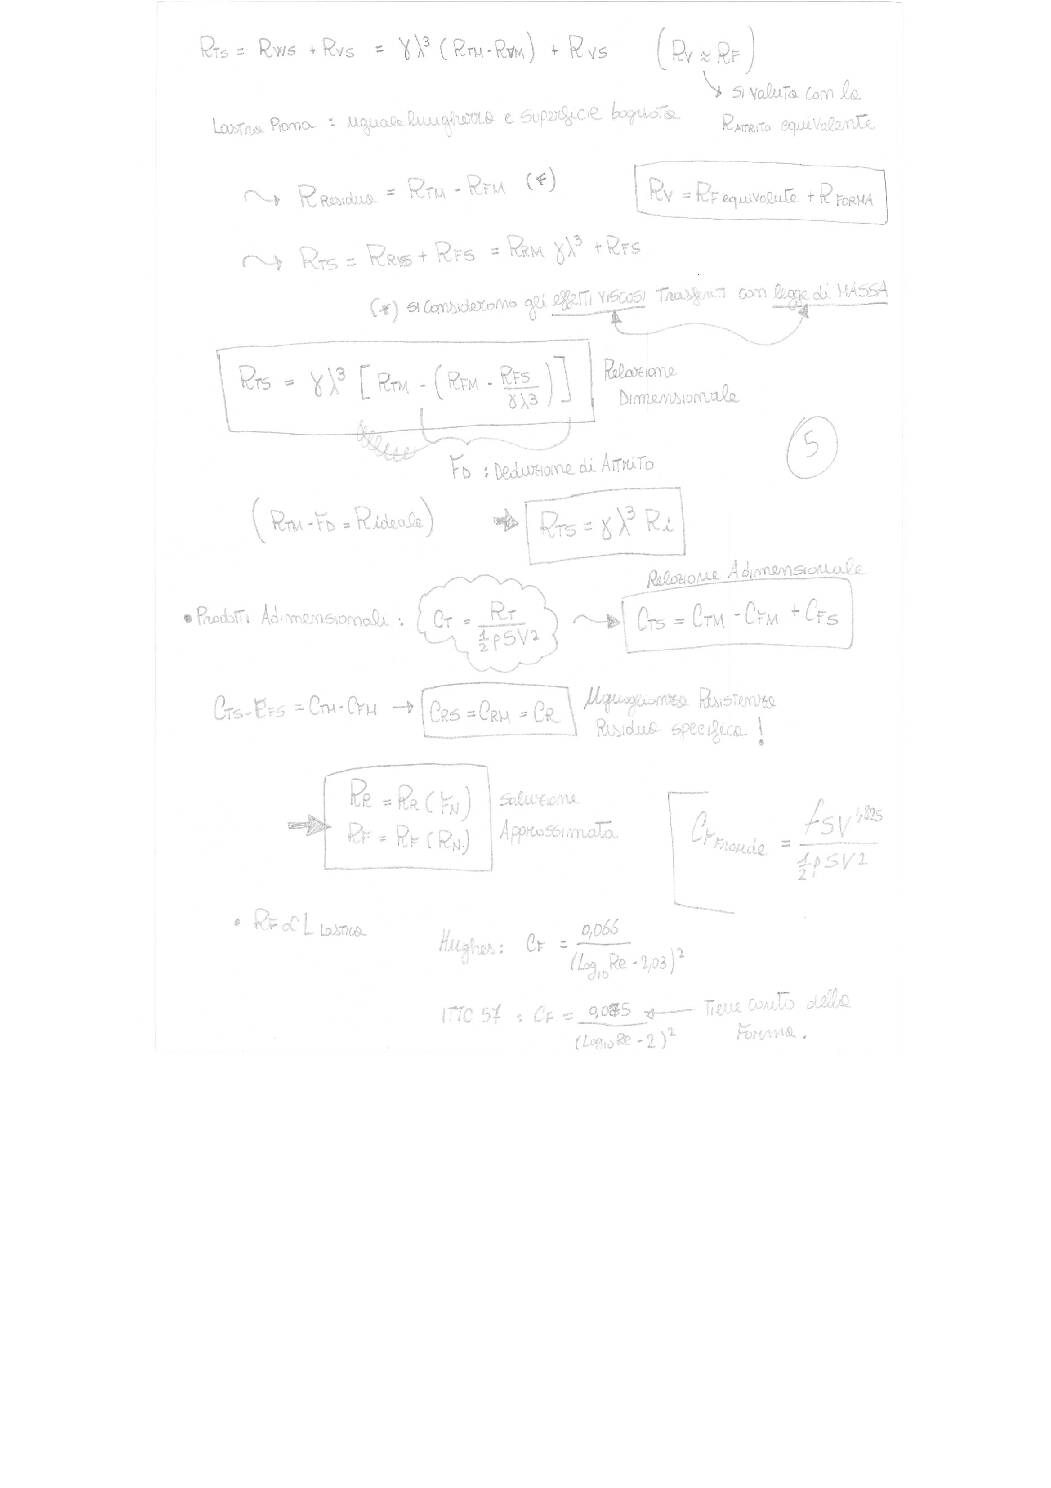 R_TS = R_WS + R_VS = γλ³ (R_TM - R_VM) + R_VS (R_V ≈ R_F)
↳ si valuta con la
R_ATTRITO equivalente
Lastra Piana : uguale lunghezza e superficie bagnata
⇝ R_Residua = R_TM - R_FM (*)
R_V = R_F equivalente + R_FORMA
⇝ R_TS = R_RS + R_FS = R_RM γλ³ + R_FS
(*) si considerano gli effetti VISCOSI Trasferiti con legge di MASSA
R_TS = γλ³ [R_TM - (R_FM - R_FS/γλ3)]
Relazione
Dimensionale
5
F_D : Deduzione di ATTRITO
(R_TM - F_D = R ideale) → R_TS = γλ³ Ri
Relazione Adimensionale
• Prodotti Adimensionali : C_T = R_T / ½ρSV2 ⇝ C_TS = C_TM - C_FM + C_FS
C_TS - C_FS = C_TM - C_FM → C_RS = C_RM = C_R
Uguaglianza Resistenza
Residua specifica !
R_R = R_R (F_N)
R_F = R_F (R_N)
Soluzione
Approssimata
C_F Froude = fSV^1,825 / ½ρSV2
• R_F ∝ L Lastra
Hughes : C_F = 0,066 / (Log₁₀ Re - 2,03)²
ITTC 57 : C_F = 0,075 / (Log₁₀ Re - 2)² ← Tiene conto della
Forma.